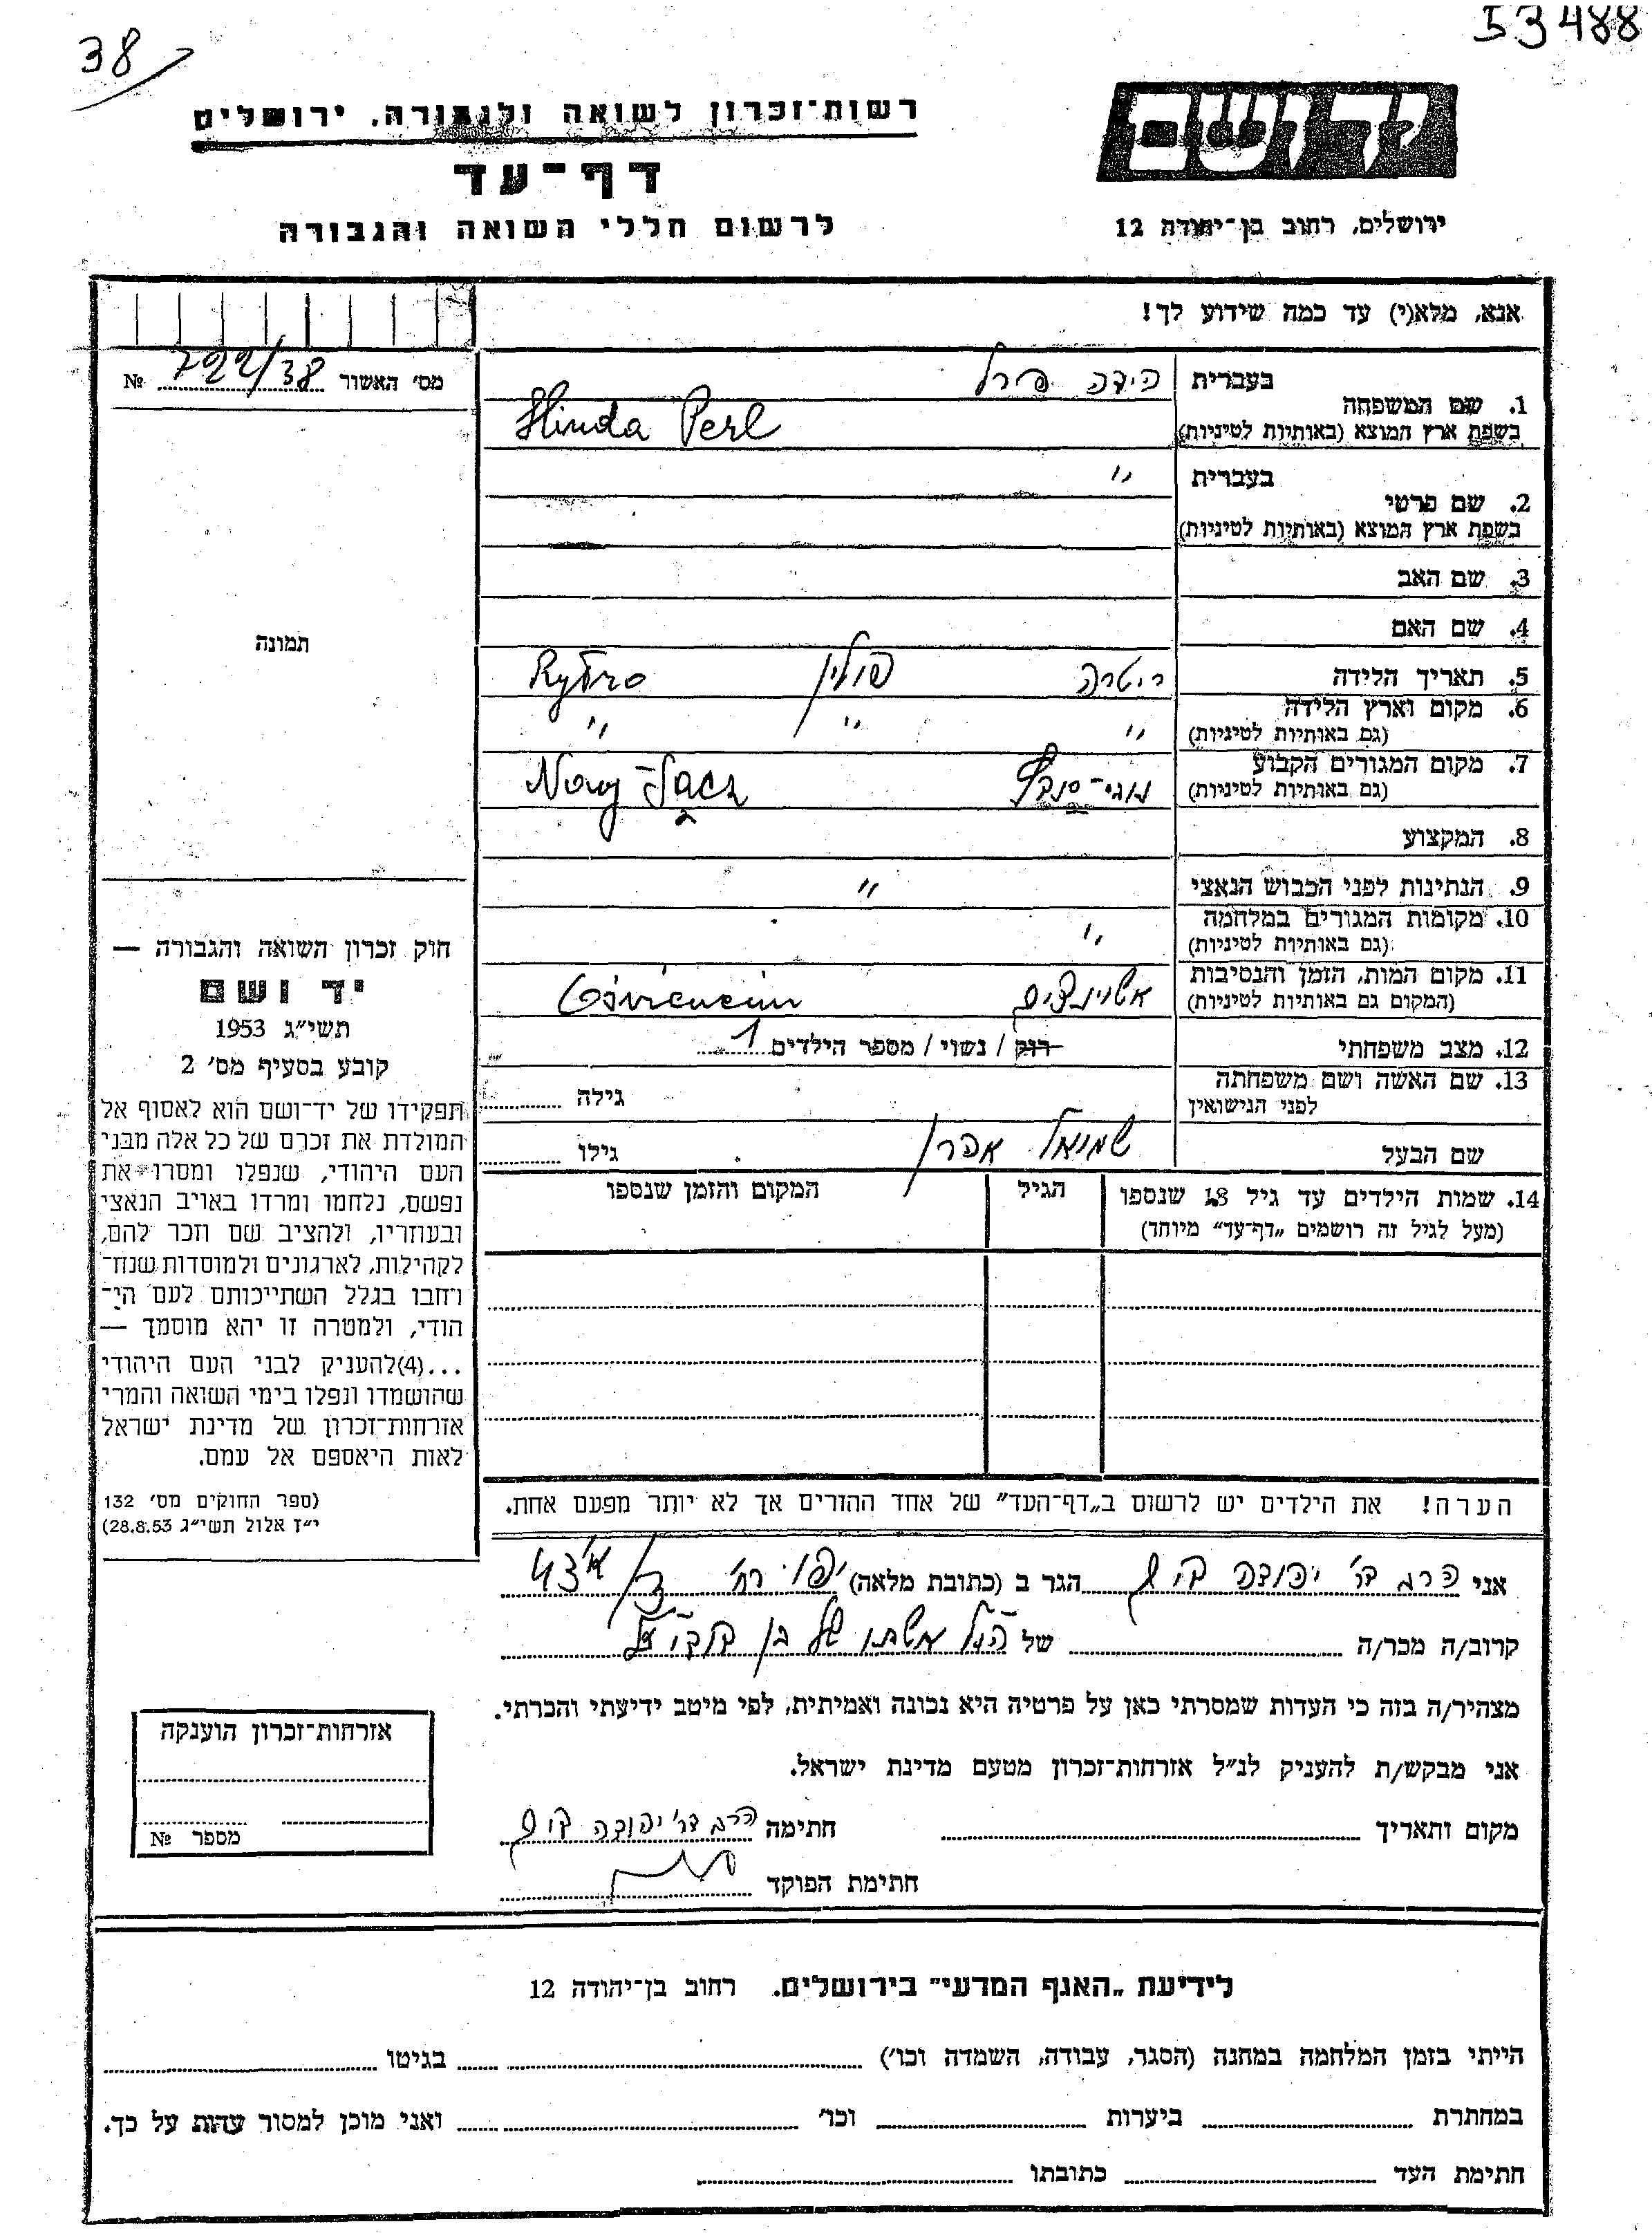 53488
38
יד ושם
רשות־זכרון לשואה ולגבורה, ירושלים
דף־עד
לרשום חללי השואה והגבורה
ירושלים, רחוב בן־יהודה 12
אנא, מלא(י) עד כמה שידוע לך!
מס׳ האשור 722/38 №
בעברית הינדה פרל
1. שם המשפחה
בשפת ארץ המוצא (באותיות לטיניות) Hinda Perl
בעברית ״
2. שם פרטי
בשפת ארץ המוצא (באותיות לטיניות)
3. שם האב
4. שם האם
5. תאריך הלידה ריטרה פולין Rytro
6. מקום וארץ הלידה
(גם באותיות לטיניות) ״ ״ ״
7. מקום המגורים הקבוע
(גם באותיות לטיניות) Nowy-Sącz
8. המקצוע
9. הנתינות לפני הכבוש הנאצי ״
10. מקומות המגורים במלחמה
(גם באותיות לטיניות) ״
11. מקום המות, הזמן והנסיבות
(המקום גם באותיות לטיניות) אשוינצים
12. מצב משפחתי רוק / נשוי / מספר הילדים 1
13. שם האשה ושם משפחתה
לפני הנישואין גילה
שם הבעל שמואל אהרן גילו
14. שמות הילדים עד גיל 18 שנספו הגיל המקום והזמן שנספו
(מעל לגיל זה רושמים „דף־עד״ מיוחד)
הערה! את הילדים יש לרשום ב„דף־העד״ של אחד ההורים אך לא יותר מפעם אחת.
תמונה
חוק זכרון השואה והגבורה —
יד ושם
תשי״ג 1953
קובע בסעיף מס׳ 2
תפקידו של יד־ושם הוא לאסוף אל
המולדת את זכרם של כל אלה מבני
העם היהודי, שנפלו ומסרו את
נפשם, נלחמו ומרדו באויב הנאצי
ובעוזריו, ולהציב שם וזכר להם,
לקהילות, לארגונים ולמוסדות שנח־
רחבו בגלל השתייכותם לעם הי־
הודי, ולמטרה זו יהא מוסמך —
...(4)להעניק לבני העם היהודי
שהושמדו ונפלו בימי השואה והמרי
אזרחות־זכרון של מדינת ישראל
לאות היאספם אל עמם.
(ספר החוקים מס׳ 132
י״ז אלול תשי״ג 28.8.53)
אני הרב דר׳ יהודה הגר ב (כתובת מלאה) יפו רח׳
קרוב/ה מכר/ה של הנ״ל אשתו של בן
מצהיר/ה בזה כי העדות שמסרתי כאן על פרטיה היא נכונה ואמיתית, לפי מיטב ידיעתי והכרתי.
אני מבקש/ת להעניק לנ״ל אזרחות־זכרון מטעם מדינת ישראל.
מקום ותאריך חתימה הרב דר׳ יהודה
חתימת הפוקד
אזרחות־זכרון הוענקה
מספר №
לידיעת „האגף המדעי״ בירושלים. רחוב בן־יהודה 12
הייתי בזמן המלחמה במחנה (הסגר, עבודה, השמדה וכו׳) בגיטו
במחתרת ביערות וכו׳ ואני מוכן למסור עדות על כך.
חתימת העד כתובתו